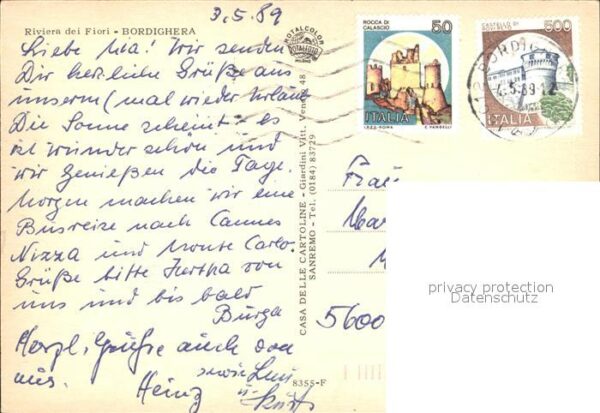 3.5.89
Riviera dei Fiori - BORDIGHERA
Liebe Mia! Wir senden
Dir herzliche Grüße aus
unserm (mal wieder Urlaub
Die Sonne scheint es
ist wunderschön und
wir genießen die Tage.
Morgen machen wir eine
Busreise nach Cannes
Nizza und Monte Carlo.
Grüße bitte Hertha von
uns und bis bald
Burga
Herzl. Grüße auch von
uns. Heinz sowie Luis
u. Kurt
ROTALCOLOR
ROTALFOTO
MILANO
CASA DELLE CARTOLINE - Giardini Vitt. Veneto, 48
SANREMO - Tel. (0184) 83729
8355-F
ROCCA DI
CALASCIO
50
ITALIA
I.P.Z.S. - ROMA
E. VANGELLI
CASTELLO DI
ROVERETO
500
ITALIA
BORDIGHERA
.5.89 12
Frau
Mar
5600
privacy protection
Datenschutz